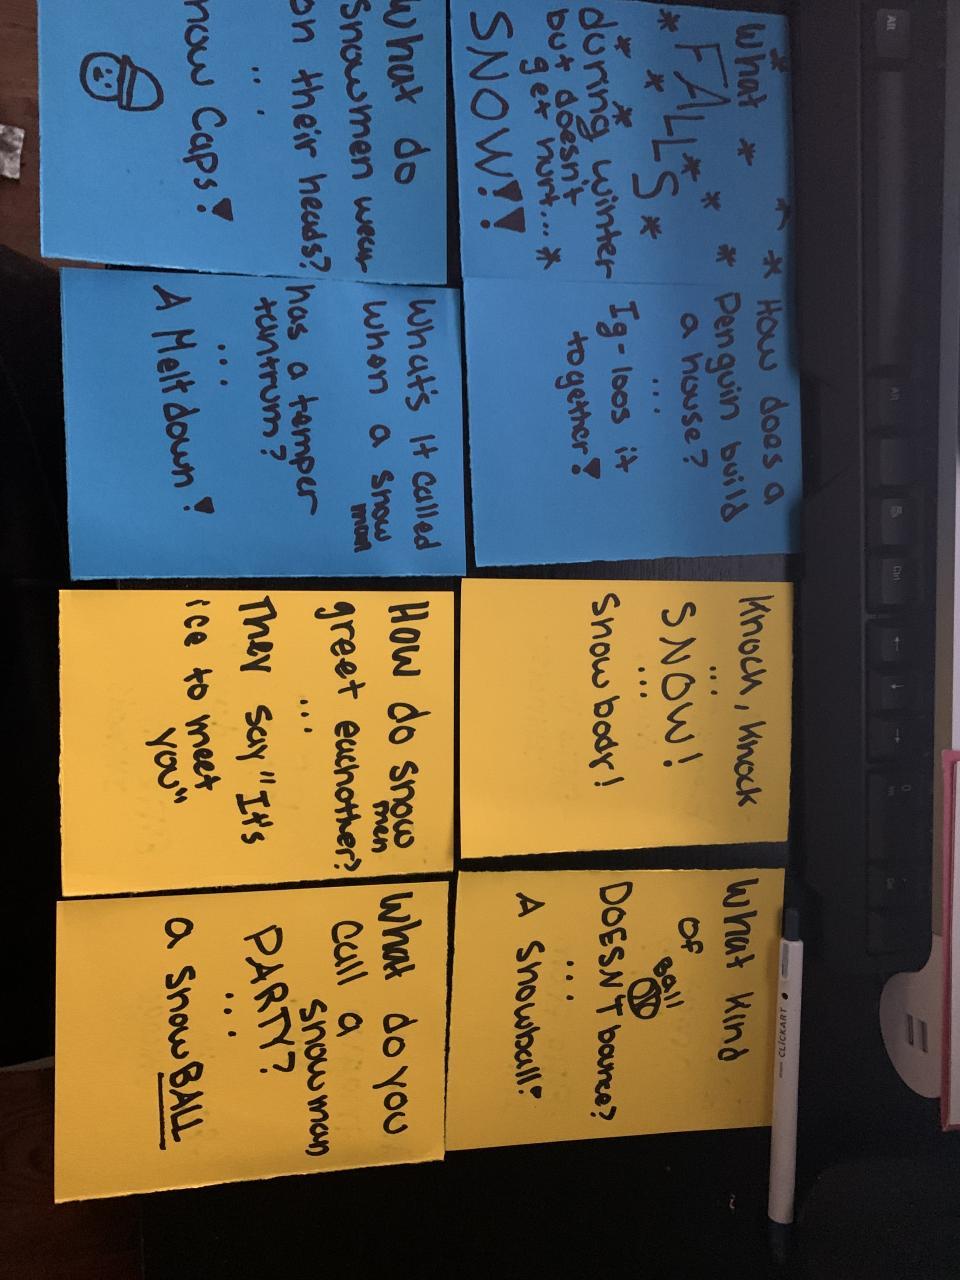 What
FALLS
during winter
but doesn't
get hurt...
SNOW!!
How does a
Penguin build
a house?
...
Ig-loos it
together!
Knock, knock
...
SNOW!
...
Snowbody!
What kind
OF
Ball
DOESNT bounce?
...
A Snowball!
What do
Snowmen wear
on their heads?
...
now Caps!
What's it called
when a snow
man
has a temper
tantrum?
...
A Melt down!
How do snow
men
greet eachother?
...
They say "It's
ice to meet
you"
What do you
Call a
snowman
PARTY?
...
a snowBALL
CLICKART
Alt
Alt
Ctrl